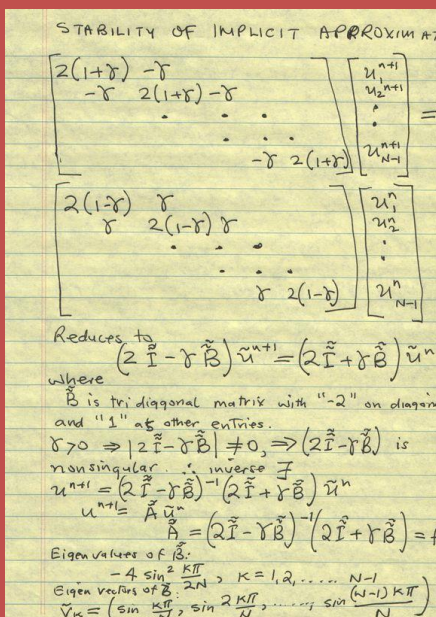 STABILITY OF IMPLICIT APPROXIMAT
2(1+γ) -γ
-γ 2(1+γ) -γ
. . .
. . .
-γ 2(1+γ)
u₁ⁿ⁺¹
u₂ⁿ⁺¹
.
.
u_{N-1}ⁿ⁺¹
=
2(1-γ) γ
γ 2(1-γ) γ
. . .
. . .
γ 2(1-γ)
u₁ⁿ
u₂ⁿ
.
.
uⁿ_{N-1}
Reduces to
(2 Ĩ - γ B̃) ũⁿ⁺¹ = (2 Ĩ + γ B̃) ũⁿ
where
B̃ is tri diagonal matrix with "-2" on diagon
and "1" as other entries.
γ>0 ⇒ |2Ĩ-γB̃| ≠0, ⇒ (2Ĩ-γB̃) is
nonsingular. ∴ inverse ∃
uⁿ⁺¹ = (2Ĩ-γB̃)⁻¹ (2Ĩ+γB̃) ũⁿ
uⁿ⁺¹ = Ã ũⁿ
Ã = (2Ĩ-γB̃)⁻¹ (2Ĩ+γB̃) = f
Eigen values of B̃:
-4 sin² kπ/2N, k = 1,2, ..... N-1
Eigen vectors of B̃:
ṽ_k = (sin kπ/N, sin 2 kπ/N, ......, sin (N-1) kπ/N)